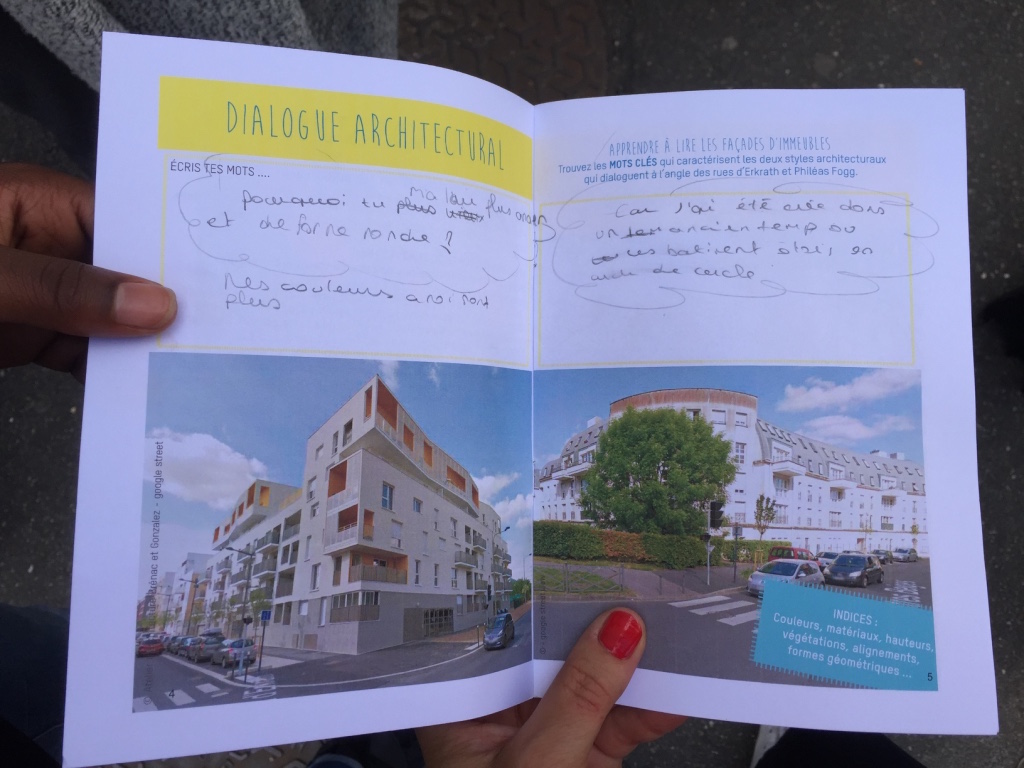 DIALOGUE ARCHITECTURAL
ÉCRIS TES MOTS ....
ma
pourquoi tu plus plus
et de forme ronde ?
Mes couleurs
plus
4
Gonzalez - google street
APPRENDRE À LIRE LES FAÇADES D'IMMEUBLES
Trouvez les MOTS CLÉS qui caractérisent les deux styles architecturaux
qui dialoguent à l'angle des rues d'Erkrath et Philéas Fogg.
Car j'ai été crée dans
un ancien temp ou
les batiment
de cercle
INDICES :
Couleurs, matériaux, hauteurs,
végétations, alignements,
formes géométriques ...
5